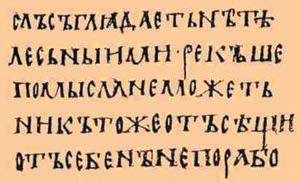 слъсъглѧдаетьнътѣ
лесьнъıими·рекъше
помысланеможеть
никътожеотъсѣщи
отъсебенънепорабо